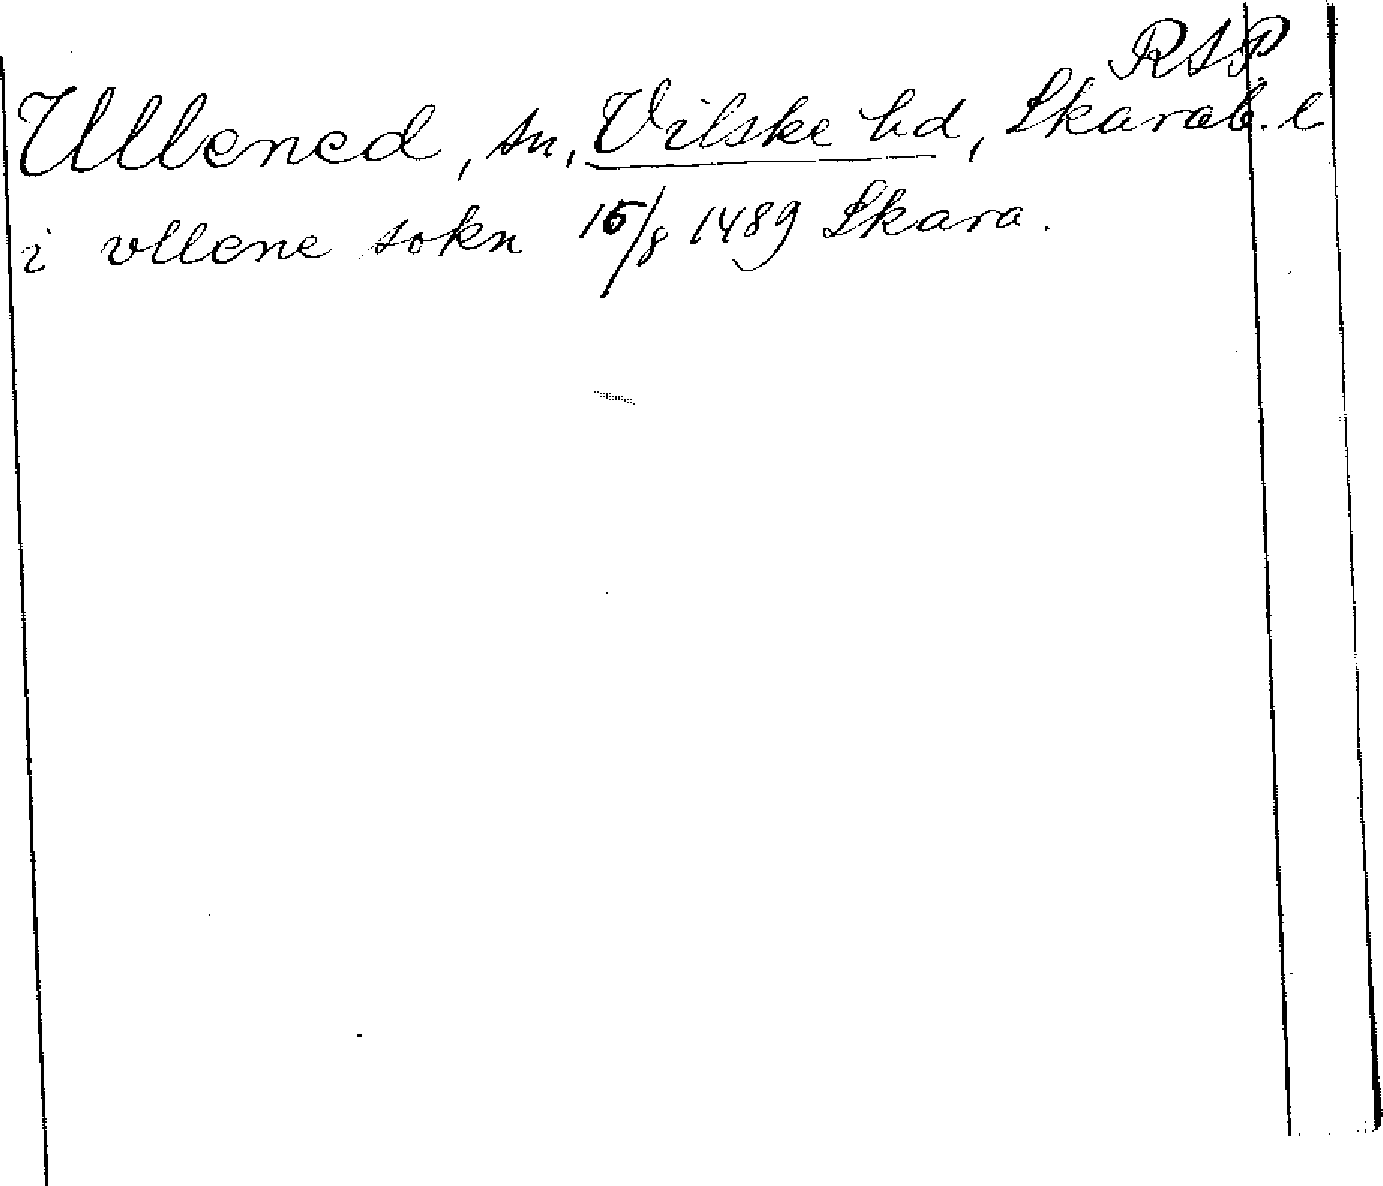 RAP
Ullened, sn, Vilske hd, Skarab. l
i vllene sokn 15/8 1489 Skara.